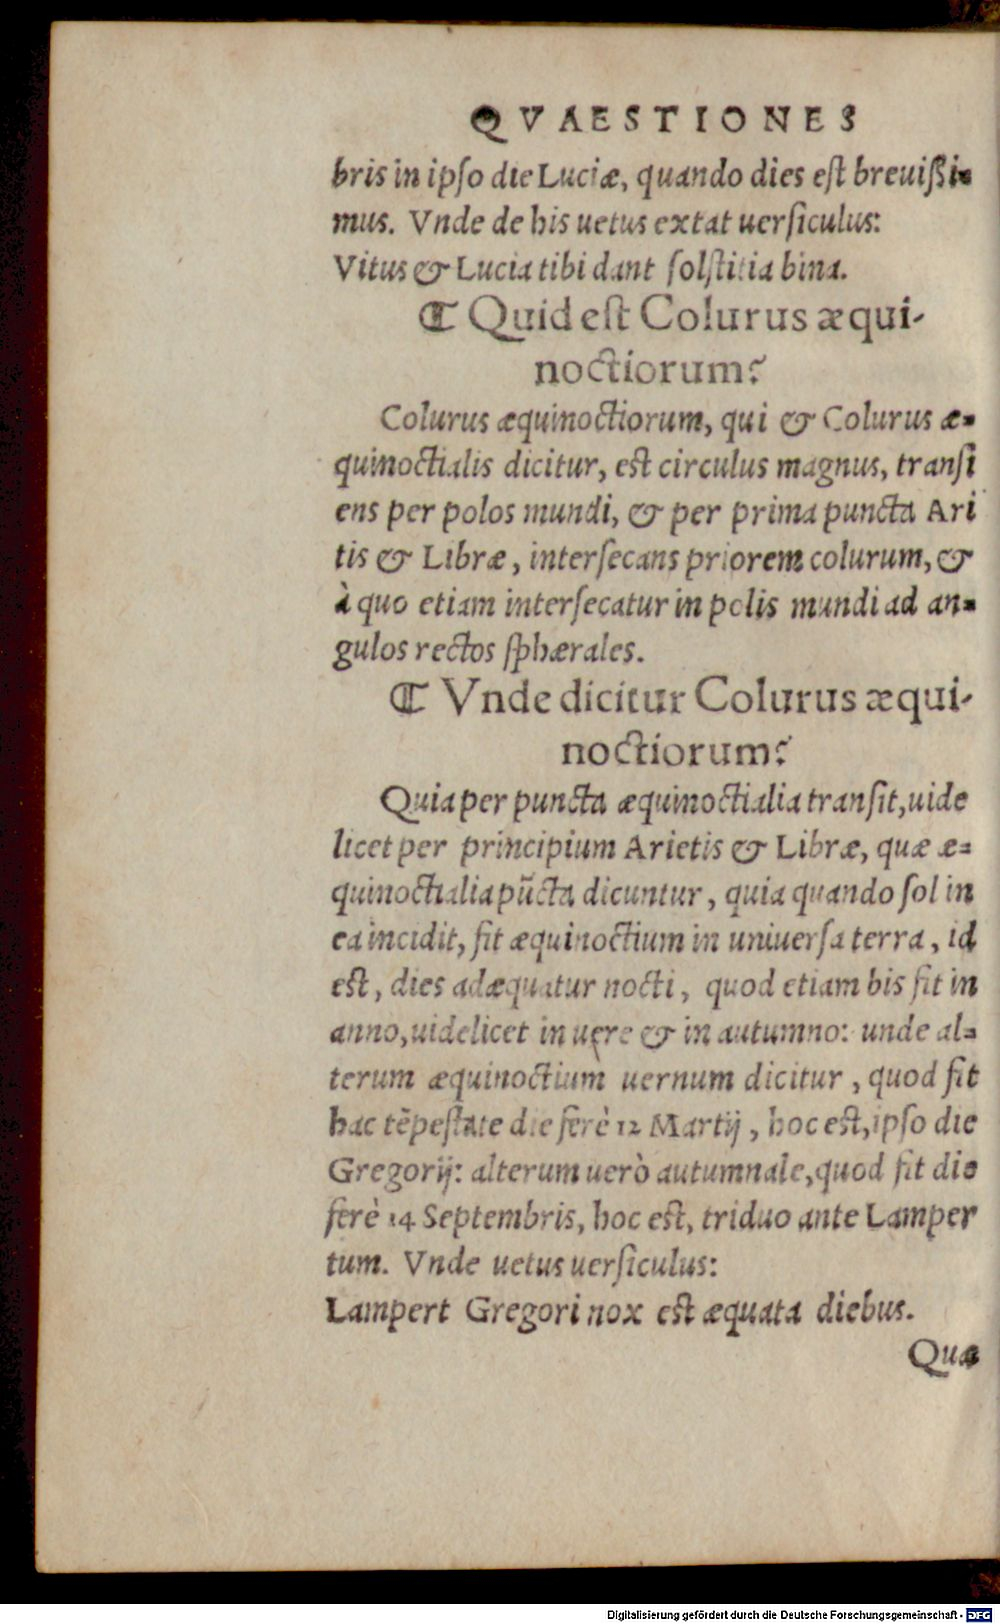 QVAESTIONES
bris in ipſo die Luciæ, quando dies eſt breuiſſi-
mus. Vnde de his uetus extat uerſiculus:
Vitus & Lucia tibi dant ſolſtitia bina.
⁋ Quid eſt Colurus æqui-
noctiorum?
Colurus æquinoctiorum, qui & Colurus æ-
quinoctialis dicitur, eſt circulus magnus, tranſi
ens per polos mundi, & per prima puncta Ari
tis & Libræ, interſecans priorem colurum, &
à quo etiam interſecatur in polis mundi ad an-
gulos rectos ſphærales.
⁋ Vnde dicitur Colurus æqui-
noctiorum?
Quia per puncta æquinoctialia tranſit, uide
licet per principium Arietis & Libræ, quæ æ-
quinoctialia pūcta dicuntur, quia quando ſol in
ea incidit, fit æquinoctium in uniuerſa terra, id
eſt, dies adæquatur nocti, quod etiam bis fit in
anno, uidelicet in uere & in autumno: unde al-
terum æquinoctium uernum dicitur, quod fit
hac tēpeſtate die ferè 12 Martij, hoc eſt, ipſo die
Gregorij: alterum uerò autumnale, quod fit die
ferè 14 Septembris, hoc eſt, triduo ante Lamper
tum. Vnde uetus uerſiculus:
Lampert Gregori nox eſt æquata diebus.
Quæ
Digitalisierung gefördert durch die Deutsche Forschungsgemeinschaft - DFG